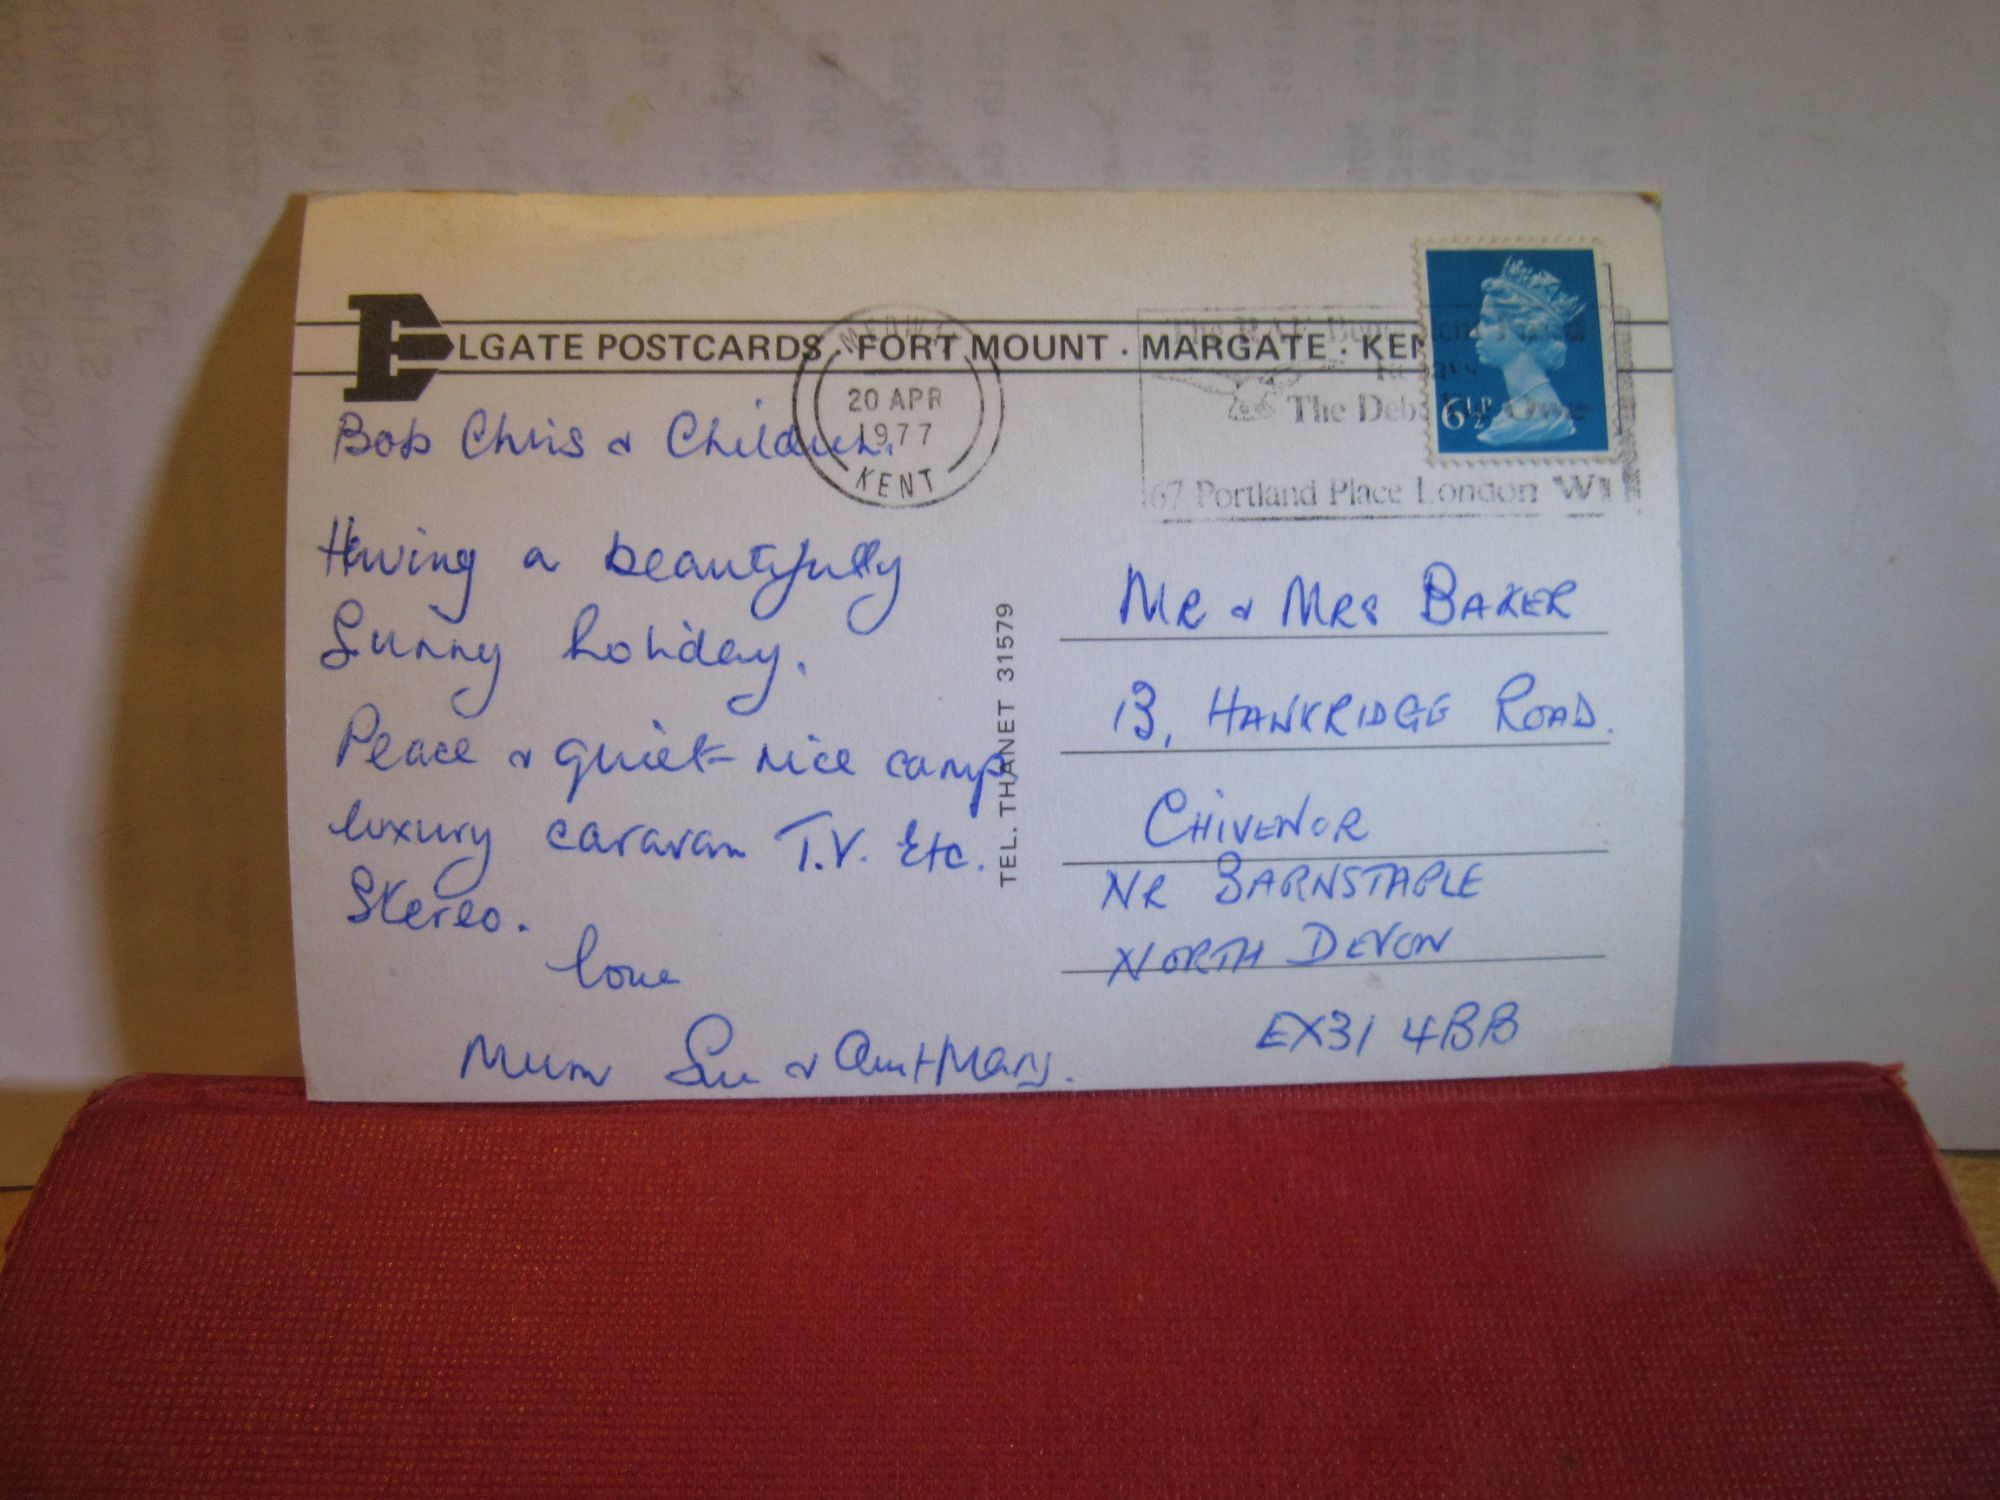 ELGATE POSTCARDS · FORT MOUNT · MARGATE · KEN
MEDWAY
20 APR
1977
KENT
The R.A.F.
The Debt We Owe
67 Portland Place London W1
6½P
Bob Chris & Children.
Having a beautifully
Sunny holiday.
Peace & quiet – nice camp
luxury caravan T.V. Etc.
Stereo.
love
Mum Sue & Aunt Mary.
TEL. THANET 31579
MR & MRS BAKER
13, HANKRIDGE ROAD.
CHIVENOR
NR BARNSTAPLE
NORTH DEVON
EX31 4BB